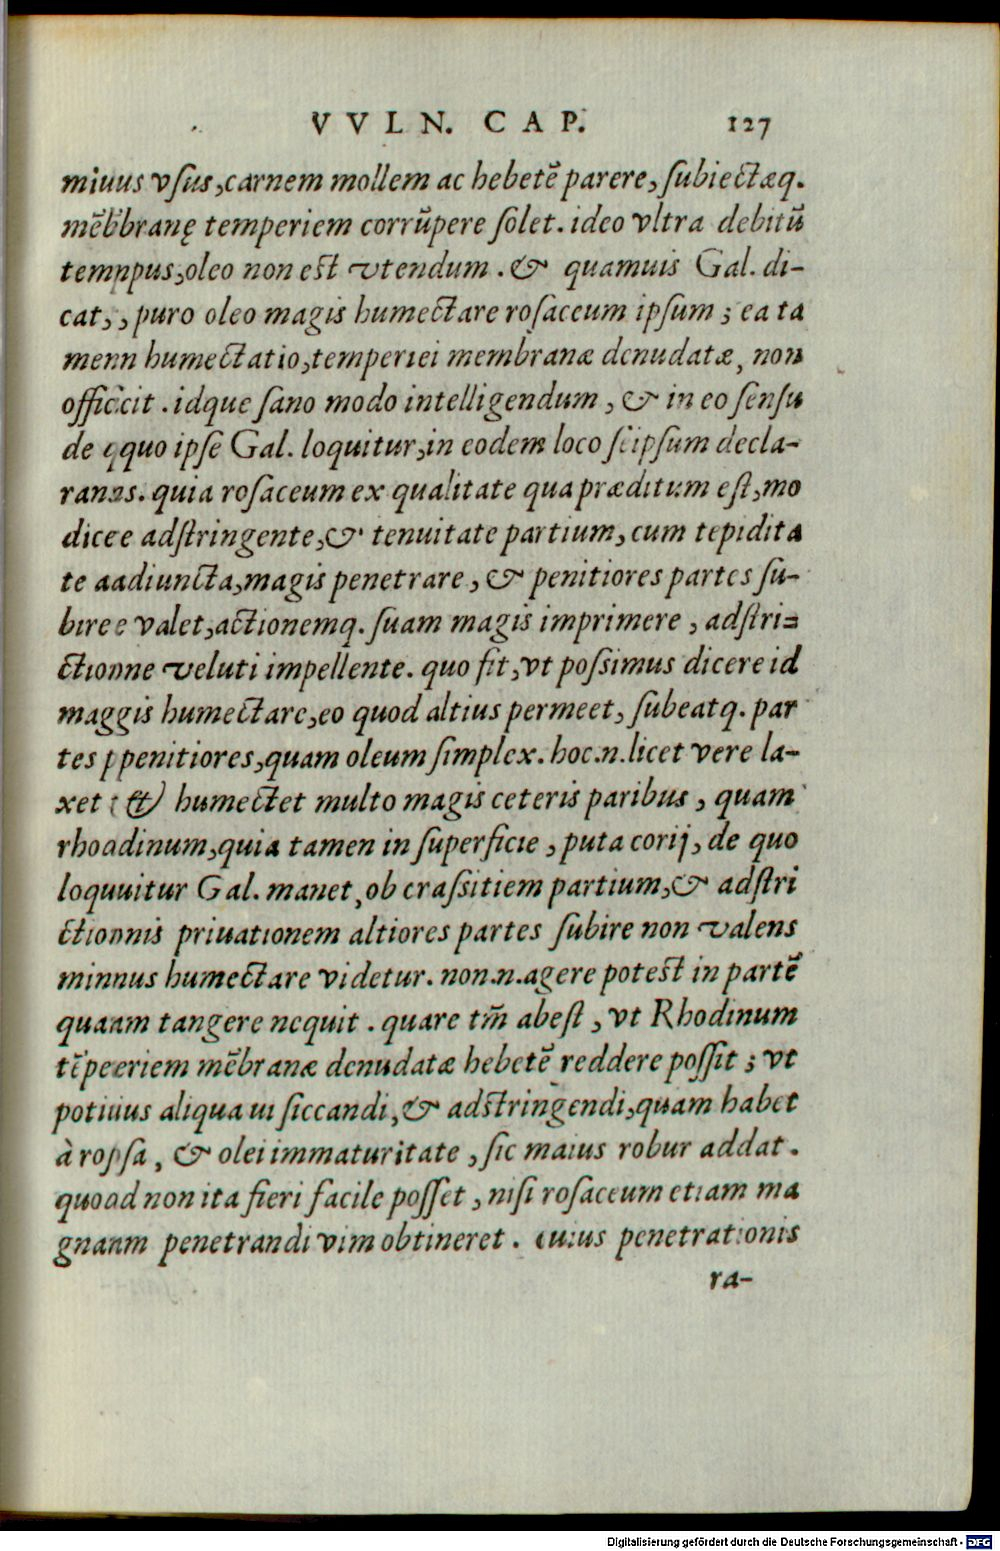 VVLN. CAP. 127
miuus vsus, carnem mollem ac hebetē parere, subiectæq.
mēbbranę temperiem corrūpere solet. ideo vltra debitū
temppus, oleo non est vtendum. & quamuis Gal. di-
cat,, puro oleo magis humectare rosaceum ipsum; ea ta
menn humectatio, temperiei membranæ denudatæ, non
officcit. idque sano modo intelligendum, & in eo sensu
de qquo ipse Gal. loquitur, in eodem loco seipsum decla-
ranns. quia rosaceum ex qualitate qua præditum est, mo
dicee adstringente, & tenuitate partium, cum tepidita
te aadiuncta, magis penetrare, & penitiores partes su-
biree valet, actionemq. suam magis imprimere, adstri=
ctionne veluti impellente. quo fit, vt possimus dicere id
maggis humectare, eo quod altius permeet, subeatq. par
tes ppenitiores, quam oleum simplex. hoc.n. licet vere la-
xet & humectet multo magis ceteris paribus, quam
rhoadinum, quia tamen in superficie, puta corij, de quo
loquuitur Gal. manet, ob crassitiem partium, & adstri
ctionnis priuationem altiores partes subire non valens
minnus humectare videtur. non.n. agere potest in partē
quaam tangere nequit. quare tm̄ abest, vt Rhodinum
tēpeeriem mēbranæ denudatæ hebetē reddere possit; vt
potiuius aliqua ui siccandi, & adstringendi, quam habet
à ropsa, & olei immaturitate, sic maius robur addat.
quoad non ita fieri facile posset, nisi rosaceum etiam ma
gnaam penetrandi vim obtineret. cuius penetrationis
ra-
Digitalisierung gefördert durch die Deutsche Forschungsgemeinschaft - DFG